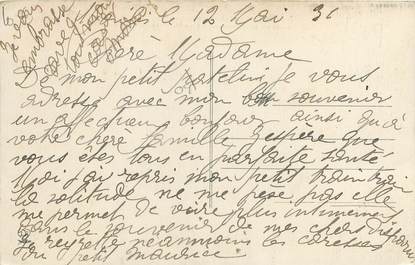 le 12 Mai 31
Chère Madame
De mon petit patelin je vous
adresse avec mon bon souvenir
un affectueux bonjour ainsi qu'à
votre chère famille. J'espère que
vous êtes tous en parfaite santé
Moi j'ai repris mon petit train train
la solitude ne me pèse pas elle
me permet de vivre plus intimement
dans le souvenir de mes chers disparus
Je regrette néanmoins les caresses
du petit Maurice.
Je vous
embrasse